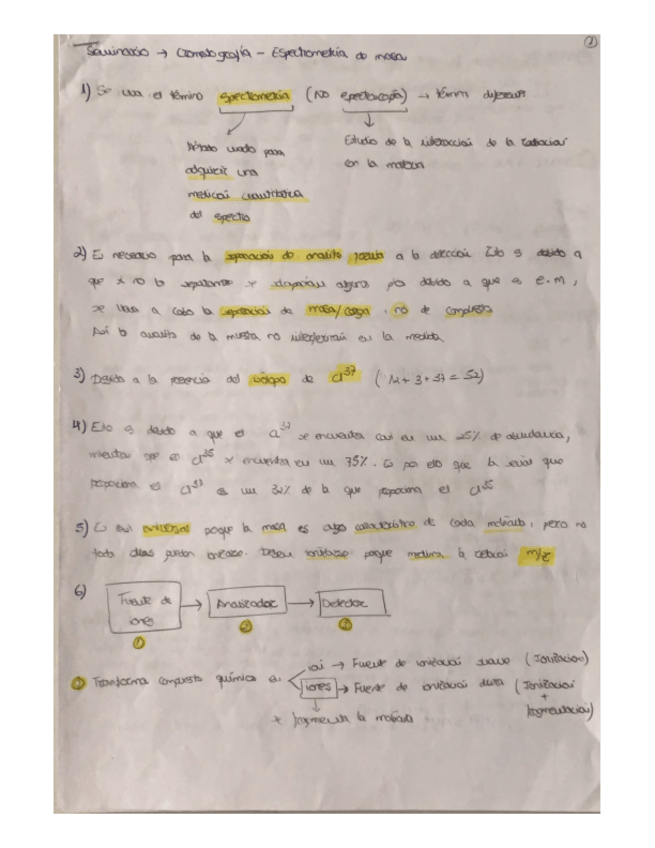 1
Seminario → Cromatografía - Espectrometría de masas
1) Se usa el término espectrometría (No espectroscopía) → términ diferentes
Método usado para
adquirir una
medición cuantitativa
del espectro
Estudio de la interacción de la radiación
con la materia
2) Es necesario para la separación de analito previa a la detección. Esto es debido a
que si no lo separamos se algunos debido a que es e.m,
se lleva a cabo la separación de masa/carga, no de compuesto
Así lo de la muestra no interferirán en la medida
3) Debido a la presencia del isótopo de Cl³⁷ (12 + 3 + 37 = 52)
4) Esto es debido a que el Cl³⁷ se encuentra casi en un 25% de abundancia,
mientras que el Cl³⁵ se encuentra en un 75%. Es por ello que la señal que
proporciona el Cl³⁷ es un 32% de la que proporciona el Cl³⁵
5) Es universal porque la masa es algo característico de cada molécula, pero no
todas ellas pueden ionizarse. Deben ionizarse porque medimos la relación m/z
6)
Fuente de
iones
→ Analizador → Detector
1 2 3
1 Transforma compuesto químico en
ión → Fuente de ionización suave (Ionización)
iones → Fuente de ionización dura (Ionización
+
fragmentación)
+ fragmenta la molécula